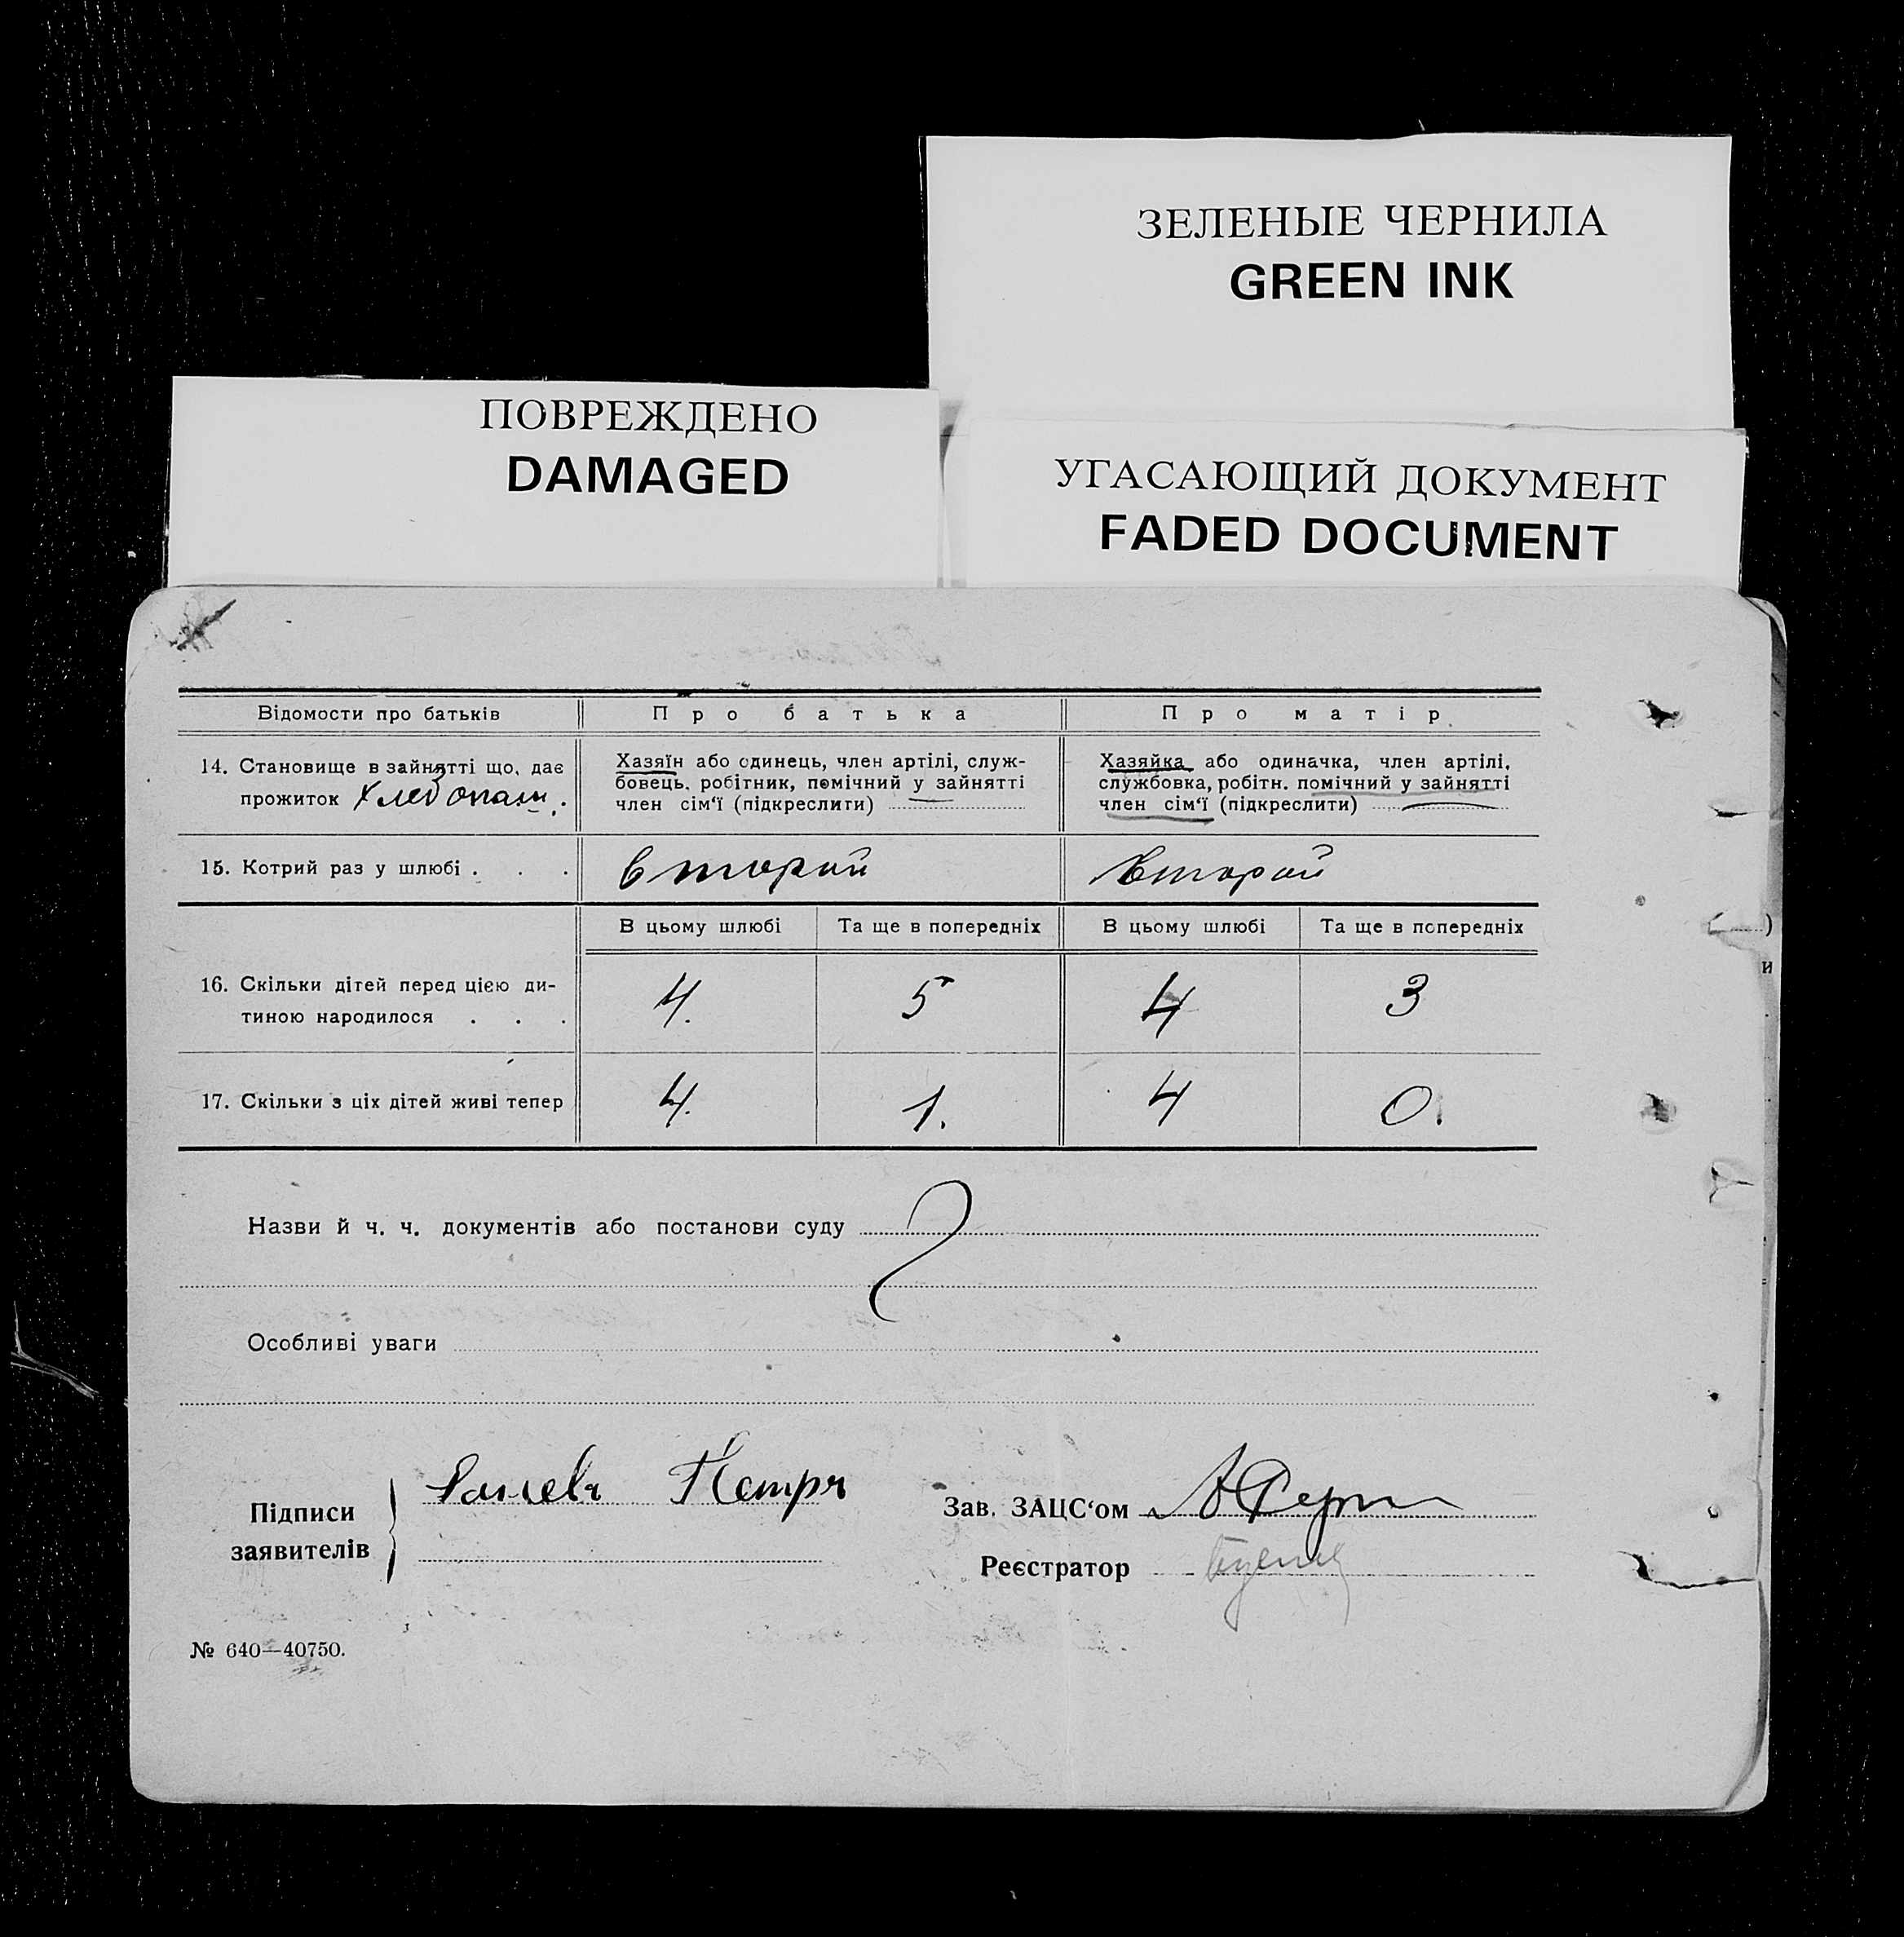 ЗЕЛЕНЫЕ ЧЕРНИЛА
GREEN INK
ПОВРЕЖДЕНО
DAMAGED
УГАСАЮЩИЙ ДОКУМЕНТ
FADED DOCUMENT
Відомости про батьків Про батька Про матір.
14. Становище в зайнятті що, дає
прожиток
Хазяїн або одинець, член артілі, служ-
бовець, робітник, помічний у зайнятті
член сім'ї (підкреслити)
Хазяйка або одиначка, член артілі,
службовка, робітн. помічний у зайнятті
член сім'ї (підкреслити)
15. Котрий раз у шлюбі . . . второй второй
В цьому шлюбі Та ще в попередніх В цьому шлюбі Та ще в попередніх
16. Скільки дітей перед цією ди-
тиною народилося . . . 4. 5 4 3
17. Скільки з ціх дітей живі тепер 4. 1. 4 0.
Назви й ч. ч. документів або постанови суду
Особливі уваги
Підписи
заявителів
Петрч
Зав. ЗАЦС'ом
Реєстратор
№ 640—40750.
)
и